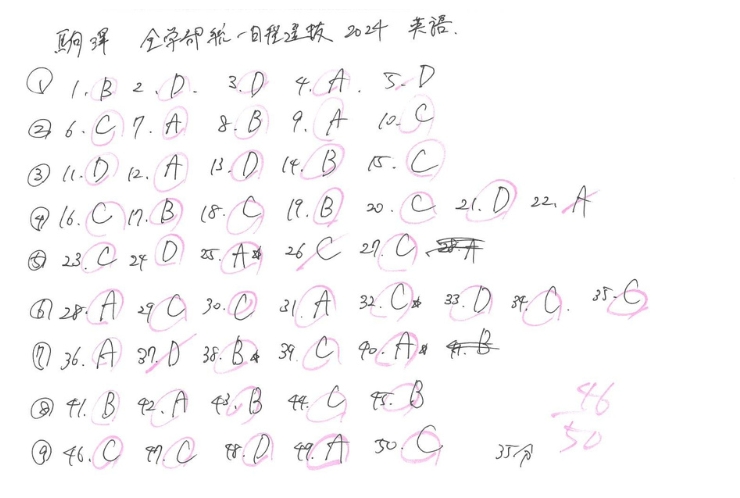 駒澤 全学部統一日程選抜 2024 英語.
① 1. B 2. D. 3. D 4. A. 5. D
② 6. C 7. A 8. B 9. A 10. C
③ 11. D 12. A 13. D 14. B 15. C
④ 16. C 17. B 18. C 19. B 20. C 21. D 22. A
⑤ 23. C 24 D 25. A* 26 C 27. C 28. A
⑥ 28. A 29 C 30. C 31. A 32. C* 33. D 34. C. 35. C
⑦ 36. A 37. D 38. B* 39. C 40. A* 41. B
⑧ 41. B 42. A 43. B 44. C 45. B
46
⑨ 46. C 47. C 48. D 49. A 50. C 35分
50